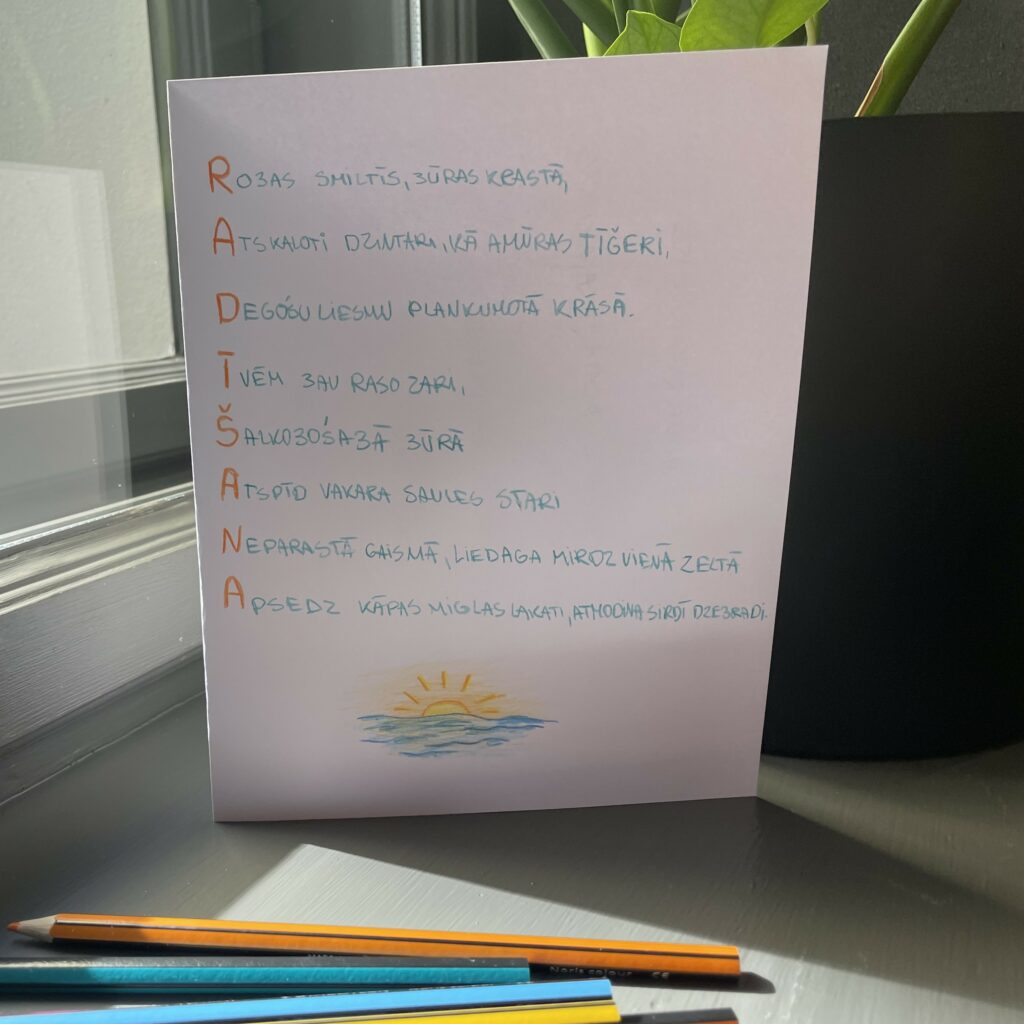 ROJAS SMILTĪS, JŪRAS KRASTĀ,
ATSKALOTI DZINTARI, KĀ AMŪRAS TĪĢERI,
DEGOŠU LIESMU PLANKUMOTĀ KRĀSĀ.
ĪVĒM JAU RASO ZARI,
ŠALKOJOŠAJĀ JŪRĀ
ATSPĪD VAKARA SAULES STARI
NEPARASTĀ GAISMĀ, LIEDAGA MIRDZ VIENĀ ZELTĀ
APSEDZ KĀPAS MIGLAS LAKATI, ATMODINA SIRDĪ DZEJRADI.
Noris colour CE